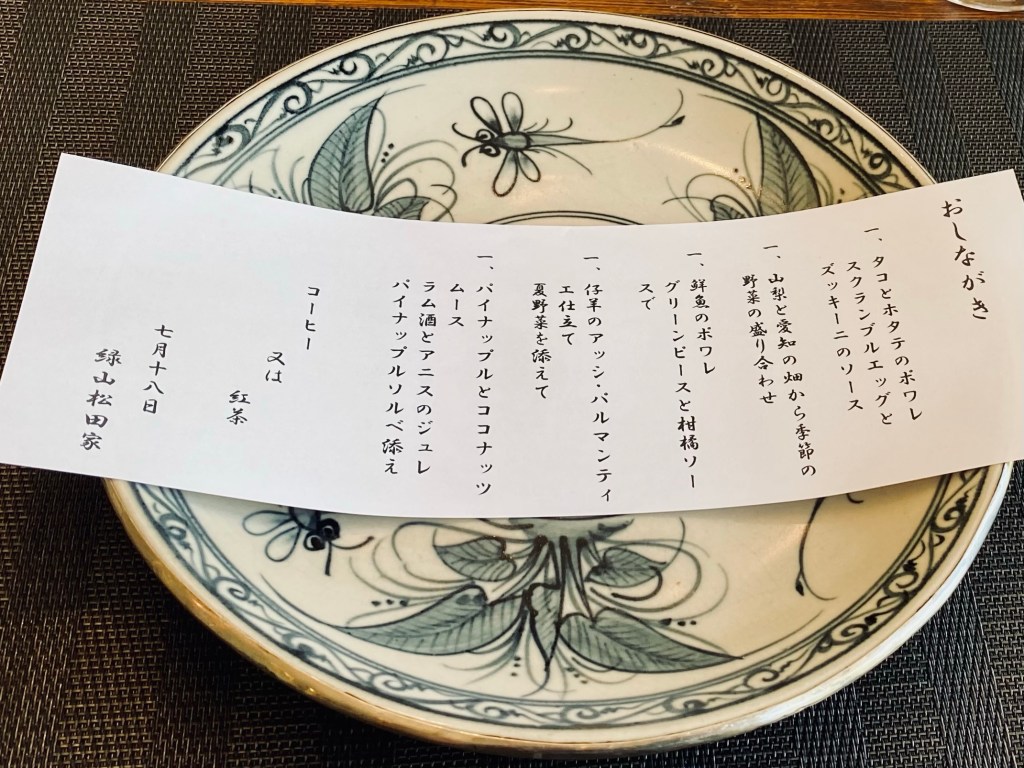 おしながき
一、タコとホタテのポワレ
スクランブルエッグと
ズッキーニのソース
一、山梨と愛知の畑から季節の
野菜の盛り合わせ
一、鮮魚のポワレ
グリーンピースと柑橘ソー
スで
一、仔羊のアッシ・パルマンティ
エ仕立て
夏野菜を添えて
一、パイナップルとココナッツ
ムース
ラム酒とアニスのジュレ
パイナップルソルベ添え
コーヒー
又は
紅茶
七月十八日
緑山松田家